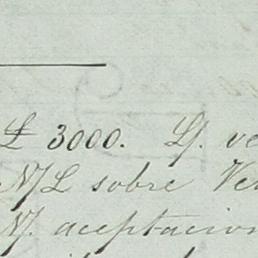 £ 3000. L/. ve
N/L sobre Ve
N/. aceptacion